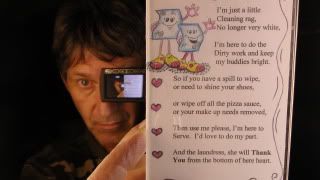 I'm just a little
Cleaning rag,
No longer very white,
I'm here to do the
Dirty work and keep
my buddies bright.
So if you have a spill to wipe,
or need to shine your shoes,
or wipe off all the pizza sauce,
or your make up needs removed,
Then use me please, I'm here to
Serve. I'd love to do my part.
And the laundress, she will Thank
You from the bottom of here heart.